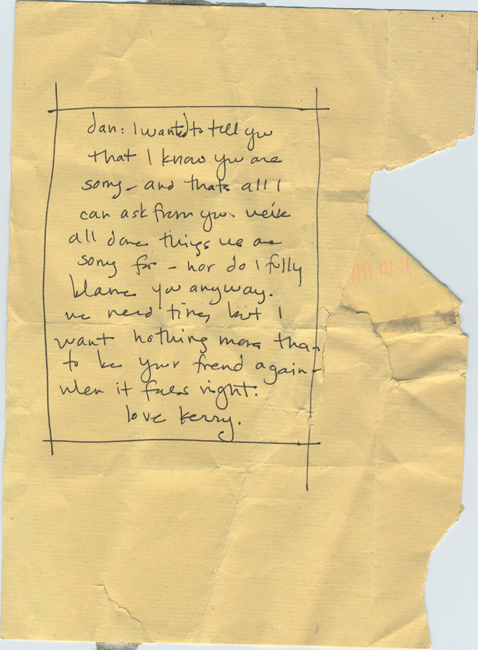 dan: I wanted to tell you
that I know you are
sorry - and thats all I
can ask from you. we've
all done things we are
sorry for - nor do I fully
blame you anyway.
we need time, but I
want nothing more than
to be your friend again -
when it feels right.
love kerry.